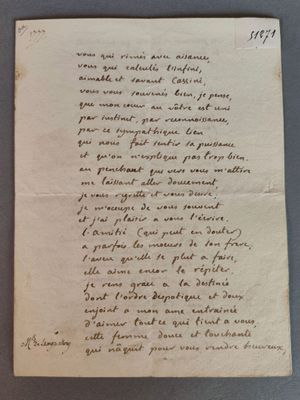 1777
51871
vous qui rimés avec aisance,
vous qui calculés l'infini,
aimable et savant Cassini,
vous vous souvenés bien, je pense,
que mon cœur au vôtre est uni
par instinct, par reconnoissance,
par ce sympathique lien
qui nous fait sentir sa puissance
et qu'on n'explique pas trop bien.
au penchant qui vers vous m'attire
me laissant aller doucement,
je vous regrette et vous desire
je m'occupe de vous souvent
et j'ai plaisir a vous l'ecrire.
l'amitié (qui peut en douter)
a parfois les moeurs de son frere,
l'aveu qu'elle se plut a faire,
elle aime encor la répéter.
je rens grace a la destinée
dont l'ordre despotique et doux
enjoint a mon ame entrainée
d'aimer tout ce qui tient a vous,
cette femme douce et touchante
qui nâquit pour vous rendre heureux,